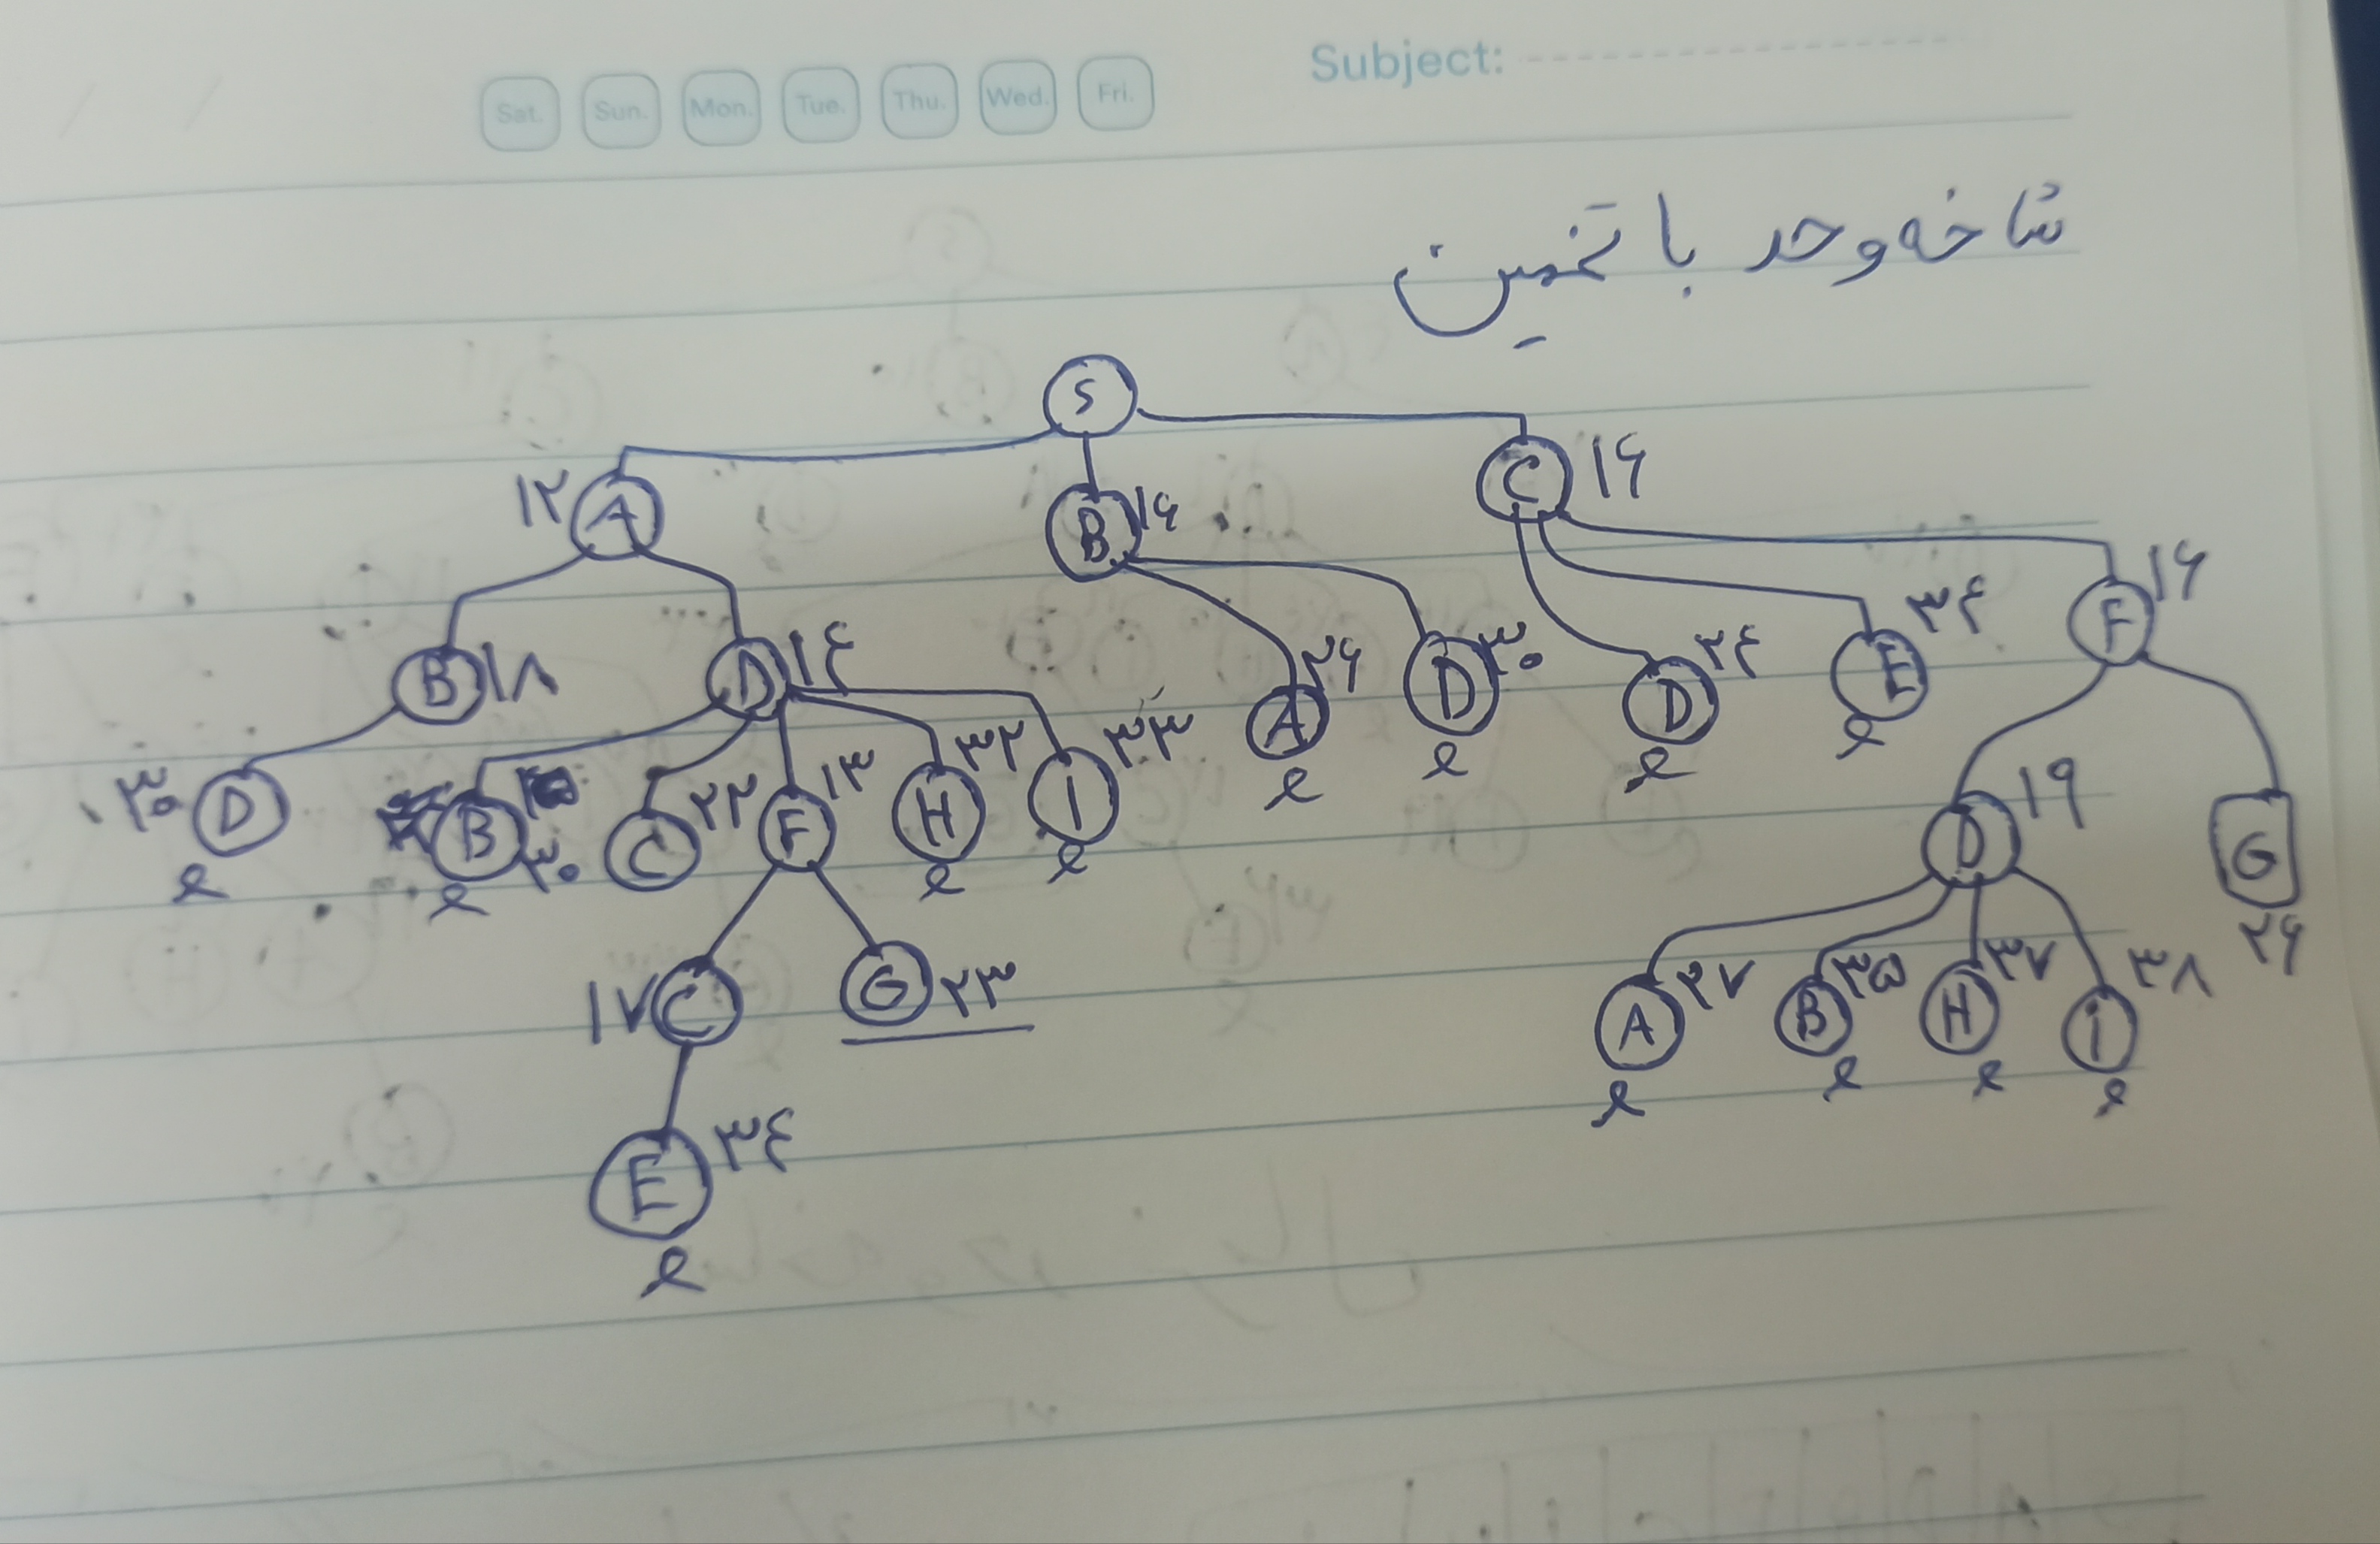 Sat. Sun. Mon. Tue. Thu. Wed. Fri. Subject:
شاخه و حد با تخمین
S
۱۲ A B ۱۶ C ۱۶
B ۱۸ D ۱۴ A ۲۶ D ۳۰ D ۲۴ E ۳۴ F ۱۶
ع ع ع ع
۳۰ D B ۳۰ C ۲۲ F ۱۳ H ۳۲ I ۳۳ D ۱۹ G ۲۶
ع ع ع ع
۱۷ C G ۲۳ A ۳۷ B ۳۵ H ۳۷ i ۳۸
ع ع ع ع
E ۳۴
ع